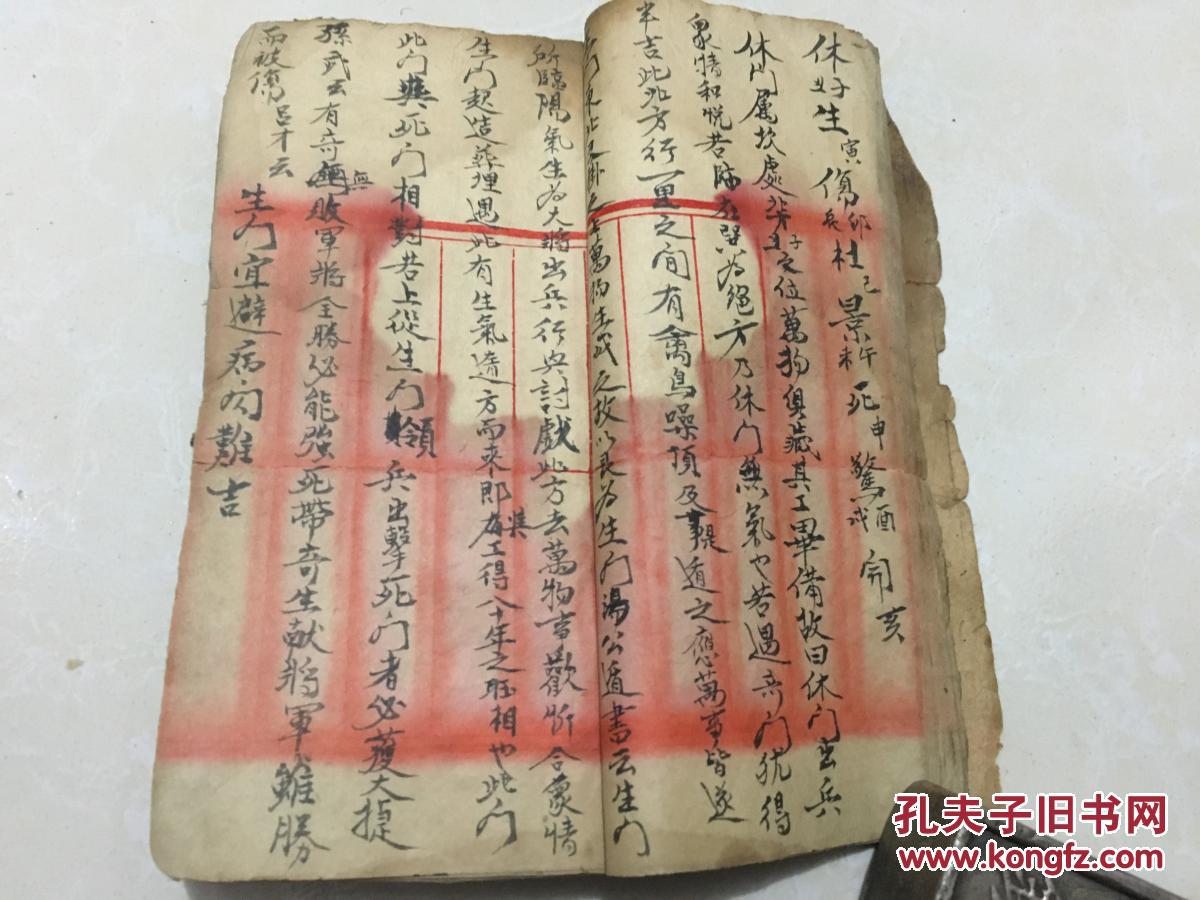 休子生寅傷卯辰杜巳景午未死申驚酉戌開亥
休門屬坎處癸子之位萬物俱藏其工畢備故曰休門出兵
象情和悅若臨為絕方乃休門無氣也若遇奇門犹得
半吉此北方行一里之间有禽鳥噪頂及之應萬事皆遂
門東北艮卦之萬物生成之故以艮為生门湯公遁書云生门
所臨陽氣生為大將出兵行兵討戲此方去萬物吉歡忻合象情
生门起造葬埋遇此有生氣遁方而來即工得八十年之旺相也此门
此门與死门相對若上從生门領兵出擊死门者必獲大捷
孫武云有奇無敗軍將全勝必能強死帶奇生献將軍雖勝
而被傷呂才云
生门宜避病问難吉
孔夫子旧书网
www.kongfz.com